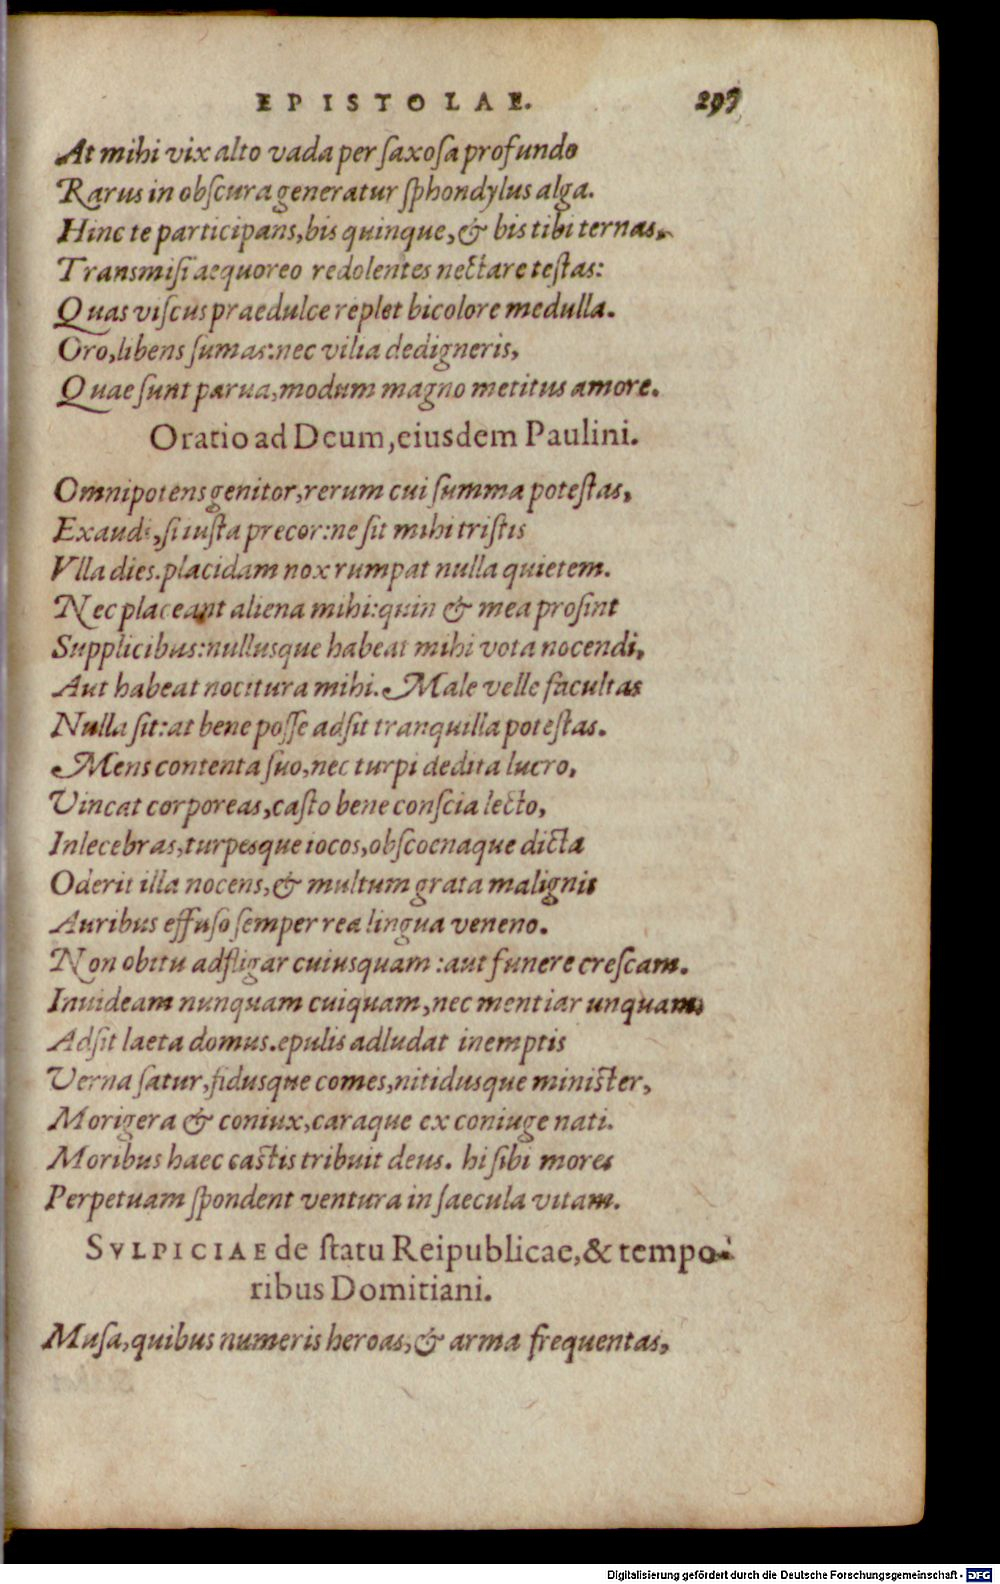 EPISTOLAE. 297
At mihi vix alto vada per saxosa profundo
Rarus in obscura generatur sphondylus alga.
Hinc te participans, bis quinque, & bis tibi ternas,
Transmisi aequoreo redolentes nectare testas:
Quas viscus praedulce replet bicolore medulla.
Oro, libens sumas: nec vilia dedigneris,
Quae sunt parua, modum magno metitus amore.
Oratio ad Deum, eiusdem Paulini.
Omnipotens genitor, rerum cui summa potestas,
Exaudi, si iusta precor: ne sit mihi tristis
Vlla dies. placidam nox rumpat nulla quietem.
Nec placeant aliena mihi: quin & mea prosint
Supplicibus: nullusque habeat mihi vota nocendi,
Aut habeat nocitura mihi. Male velle facultas
Nulla sit: at bene posse adsit tranquilla potestas.
Mens contenta suo, nec turpi dedita lucro,
Vincat corporeas, casto bene conscia lecto,
Inlecebras, turpesque iocos, obscoenaque dicta
Oderit illa nocens, & multum grata malignis
Auribus effuso semper rea lingua veneno.
Non obitu adfligar cuiusquam: aut funere crescam.
Inuideam nunquam cuiquam, nec mentiar unquam,
Adsit laeta domus. epulis adludat inemptis
Verna satur, fidusque comes, nitidusque minister,
Morigera & coniux, caraque ex coniuge nati.
Moribus haec castis tribuit deus. hi sibi mores
Perpetuam spondent ventura in saecula vitam.
SVLPICIAE de statu Reipublicae, & tempo-
ribus Domitiani.
Musa, quibus numeris heroas, & arma frequentas,
Digitalisierung gefördert durch die Deutsche Forschungsgemeinschaft - DFG